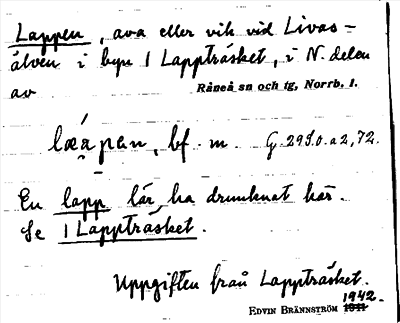 Lappen, ava eller vik vid Livas-
älven i byn 1 Lappträsket, i N. delen
av Råneå sn och tg, Norrb. l.
læ̀ạpạn, bf. m. G. 295.0.a2,72.
En lapp lär ha drunknat här.
Se 1 Lappträsket.
Uppgiften från Lappträsket.
1942.
EDVIN BRÄNNSTRÖM 1941